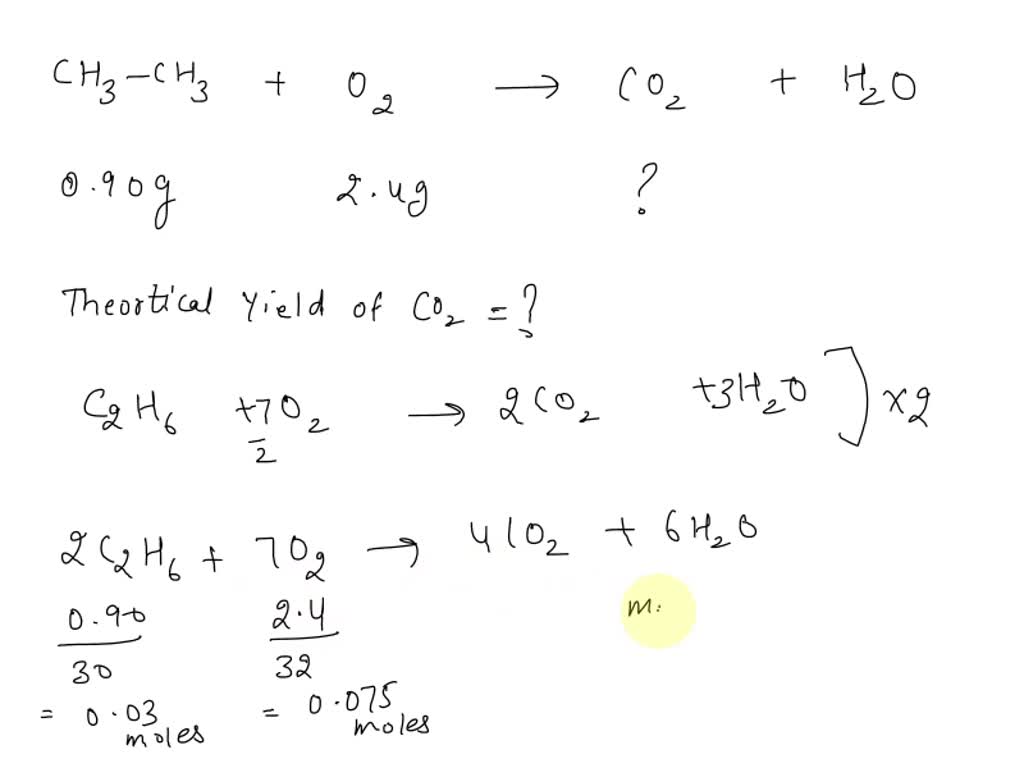 CH₃–CH₃ + O₂ → CO₂ + H₂O
0.90g 2.4g ?
Theortical Yield of CO₂ = ?
C₂H₆ + 7/2 O₂ → 2CO₂ + 3H₂O ] × 2
2C₂H₆ + 7O₂ → 4CO₂ + 6H₂O
0.90/30 2.4/32 m.
= 0.03 moles = 0.075 moles